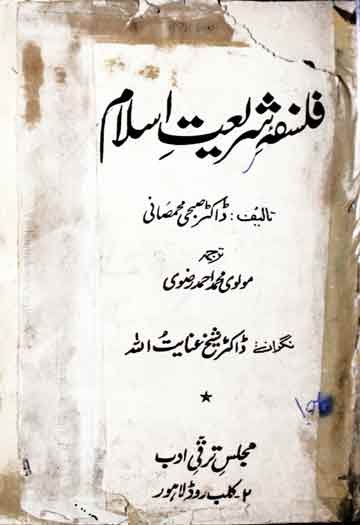 فلسفۂ شریعتِ اسلام
تالیف : ڈاکٹر صبحی محمصانی
ترجمہ
مولوی محمد احمد رضوی
نگران : ڈاکٹر شیخ عنایت اللہ
★
مجلسِ ترقی ادب
۲۔ کلب روڈ لاہور